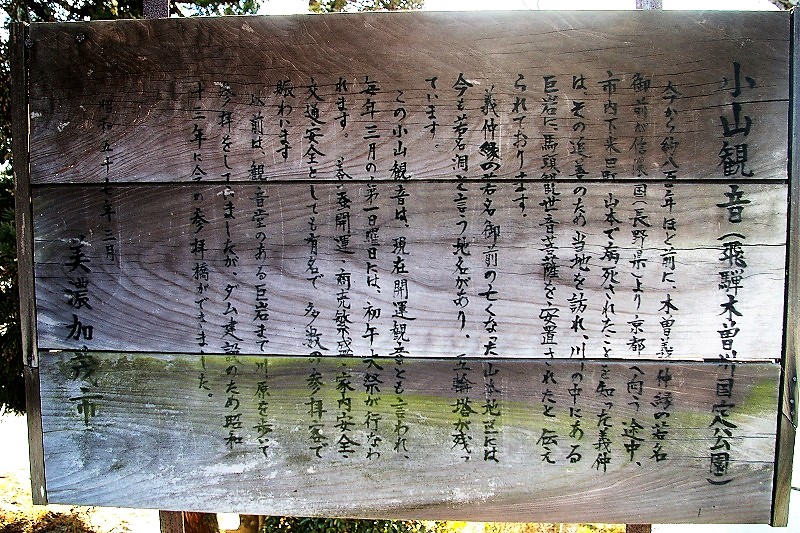 小山観音(飛騨木曽川国定公園)
今から約八百年ほど前に、木曽義仲縁の若名
御前が信濃国(長野県)より京都へ向う途中、
市内下米田町山本で病死されたことを知った義仲
は、その追善のため当地を訪れ、川の中にある
巨岩に馬頭観世音菩薩を安置されたと伝え
られております。
義仲縁の若名御前の亡くなった山本地区には
今も若名洞と言う地名があり、五輪塔が残っ
ています。
この小山観音は、現在開運観音とも言われ、
毎年三月の第一日曜日には、初午大祭が行なわ
れます。養蚕開運、商売繁盛、家内安全、
交通安全としても有名で、多数の参拝客で
賑わいます
以前は、観音堂のある巨岩まで川原を歩いて
参拝をしていましたが、ダム建設のため昭和
十三年に今の参拝橋ができました。
昭和五十七年三月
美濃加茂市